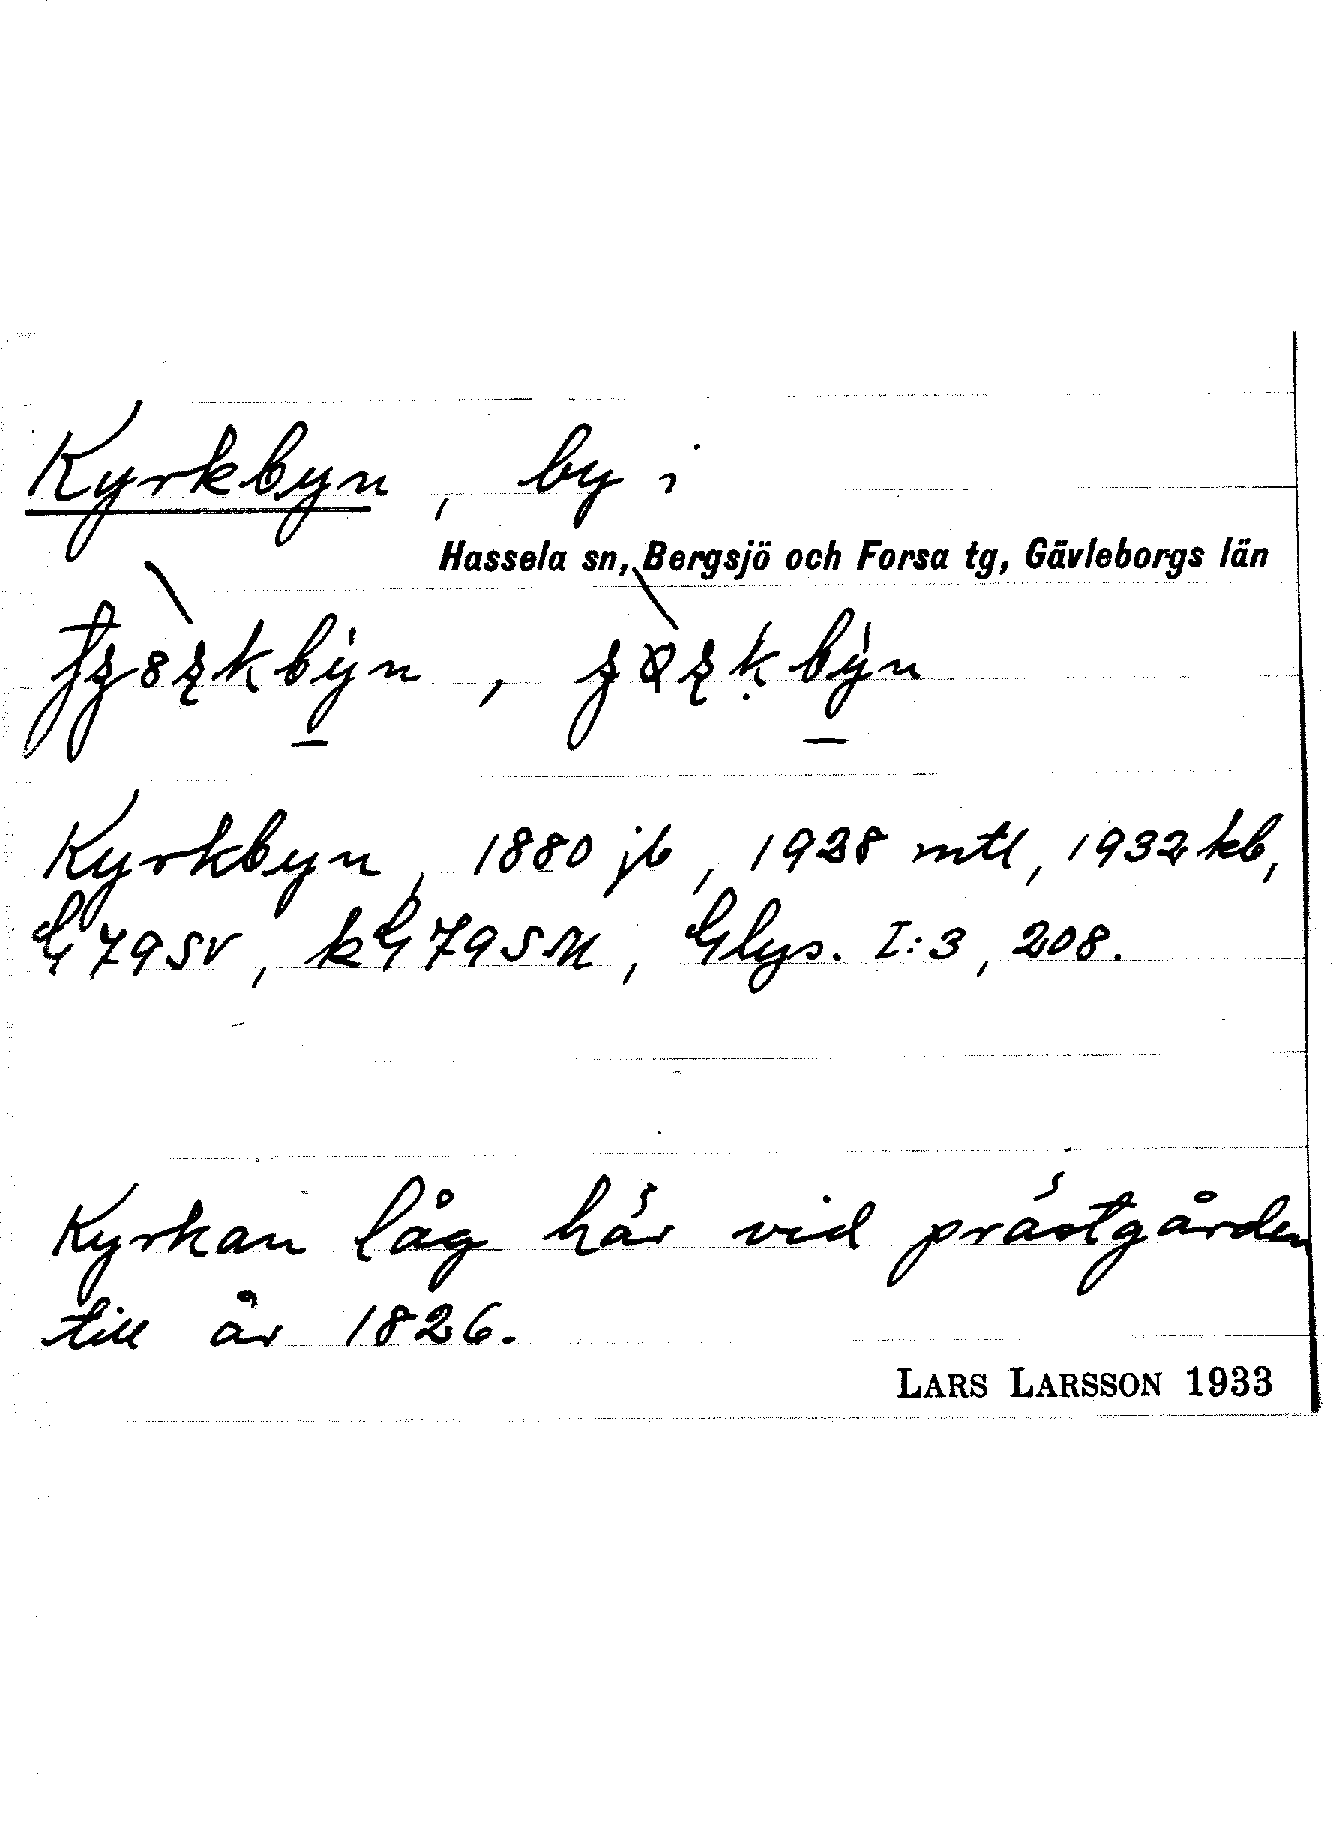 Kyrkbyn, by i
Hassela sn, Bergsjö och Forsa tg, Gävleborgs län
Kyrkbyn, 1880 jb, 1928 mtl, 1932 kb,
G 79 SV, kG 79 SM, Glys. I:3, 208.
Kyrkan låg här vid prästgården
till år 1826.
LARS LARSSON 1933